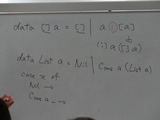 data [] a = [] | a : [a]
(:) a ([] a)
data List a = Nil | Cons a (List a)
case x of
Nil →
Cons a _ →